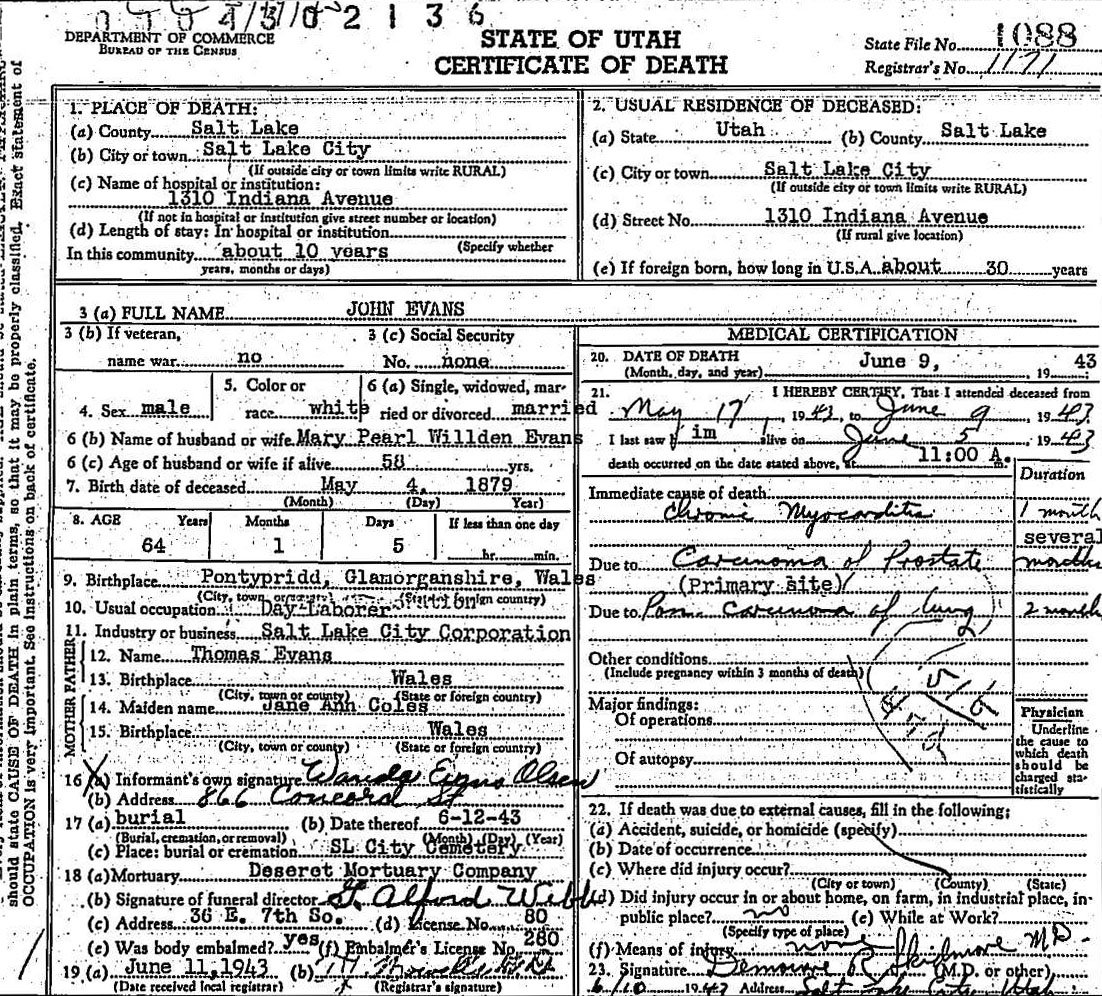 2 1 3 6
DEPARTMENT OF COMMERCE
BUREAU OF THE CENSUS
STATE OF UTAH
CERTIFICATE OF DEATH
State File No. 1088
Registrar's No. 1171
should state CAUSE OF DEATH in plain terms, so that it may be properly classified. Exact statement of
OCCUPATION is very important. See instructions on back of certificate.
1. PLACE OF DEATH:
(a) County Salt Lake
(b) City or town Salt Lake City
(If outside city or town limits write RURAL)
(c) Name of hospital or institution:
1310 Indiana Avenue
(If not in hospital or institution give street number or location)
(d) Length of stay: In hospital or institution
(Specify whether
In this community about 10 years
years, months or days)
2. USUAL RESIDENCE OF DECEASED:
(a) State Utah (b) County Salt Lake
(c) City or town Salt Lake City
(If outside city or town limits write RURAL)
(d) Street No. 1310 Indiana Avenue
(If rural give location)
(e) If foreign born, how long in U.S.A. about 30 years
3 (a) FULL NAME JOHN EVANS
3 (b) If veteran, 3 (c) Social Security
name war no No. none
5. Color or 6 (a) Single, widowed, mar-
4. Sex male race white ried or divorced married
6 (b) Name of husband or wife Mary Pearl Willden Evans
6 (c) Age of husband or wife if alive 58 yrs.
7. Birth date of deceased May 4, 1879
(Month) (Day) Year)
8. AGE Years Months Days If less than one day
64 1 5 hr. min.
9. Birthplace Pontypridd, Glamorganshire, Wales
(City, town or county) (State or foreign country)
10. Usual occupation Day-Laborer
11. Industry or business Salt Lake City Corporation
FATHER
12. Name Thomas Evans
13. Birthplace Wales
(City, town or county) (State or foreign country)
MOTHER
14. Maiden name Jane Ann Coles
15. Birthplace Wales
(City, town or county) (State or foreign country)
16 (a) Informant's own signature Wanda Evans Olsen
(b) Address 866 Concord St
17 (a) burial (b) Date thereof 6-12-43
(Burial, cremation, or removal) (Month) (Day) (Year)
(c) Place: burial or cremation SL City Cemetery
18 (a) Mortuary Deseret Mortuary Company
(b) Signature of funeral director Alford Webb
(c) Address 36 E. 7th So. (d) License No. 80
(e) Was body embalmed? yes (f) Embalmer's License No. 280
19 (a) June 11, 1943 (b)
(Date received local registrar) (Registrar's signature)
MEDICAL CERTIFICATION
20. DATE OF DEATH June 9, 19 43
(Month, day, and year)
21. I HEREBY CERTIFY, That I attended deceased from
May 17 1943, to June 9 1943
I last saw him alive on June 5 1943
death occurred on the date stated above, at 11:00 A.
Duration
Immediate cause of death
Chronic Myocarditis 1 month
several
Due to Carcinoma of Prostate months
(Primary site)
Due to Carcinoma of lung 2 months
Other conditions
(Include pregnancy within 3 months of death)
Major findings:
Of operations
Of autopsy
Physician
Underline
the cause to
which death
should be
charged sta-
tistically
22. If death was due to external causes, fill in the following:
(a) Accident, suicide, or homicide (specify)
(b) Date of occurrence
(c) Where did injury occur?
(City or town) (County) (State)
(d) Did injury occur in or about home, on farm, in industrial place, in-
public place? no (e) While at Work?
(Specify type of place)
(f) Means of injury none
23. Signature R. Skidmore M.D.
(M.D. or other)
6/10 1943 Address Salt Lake City Utah